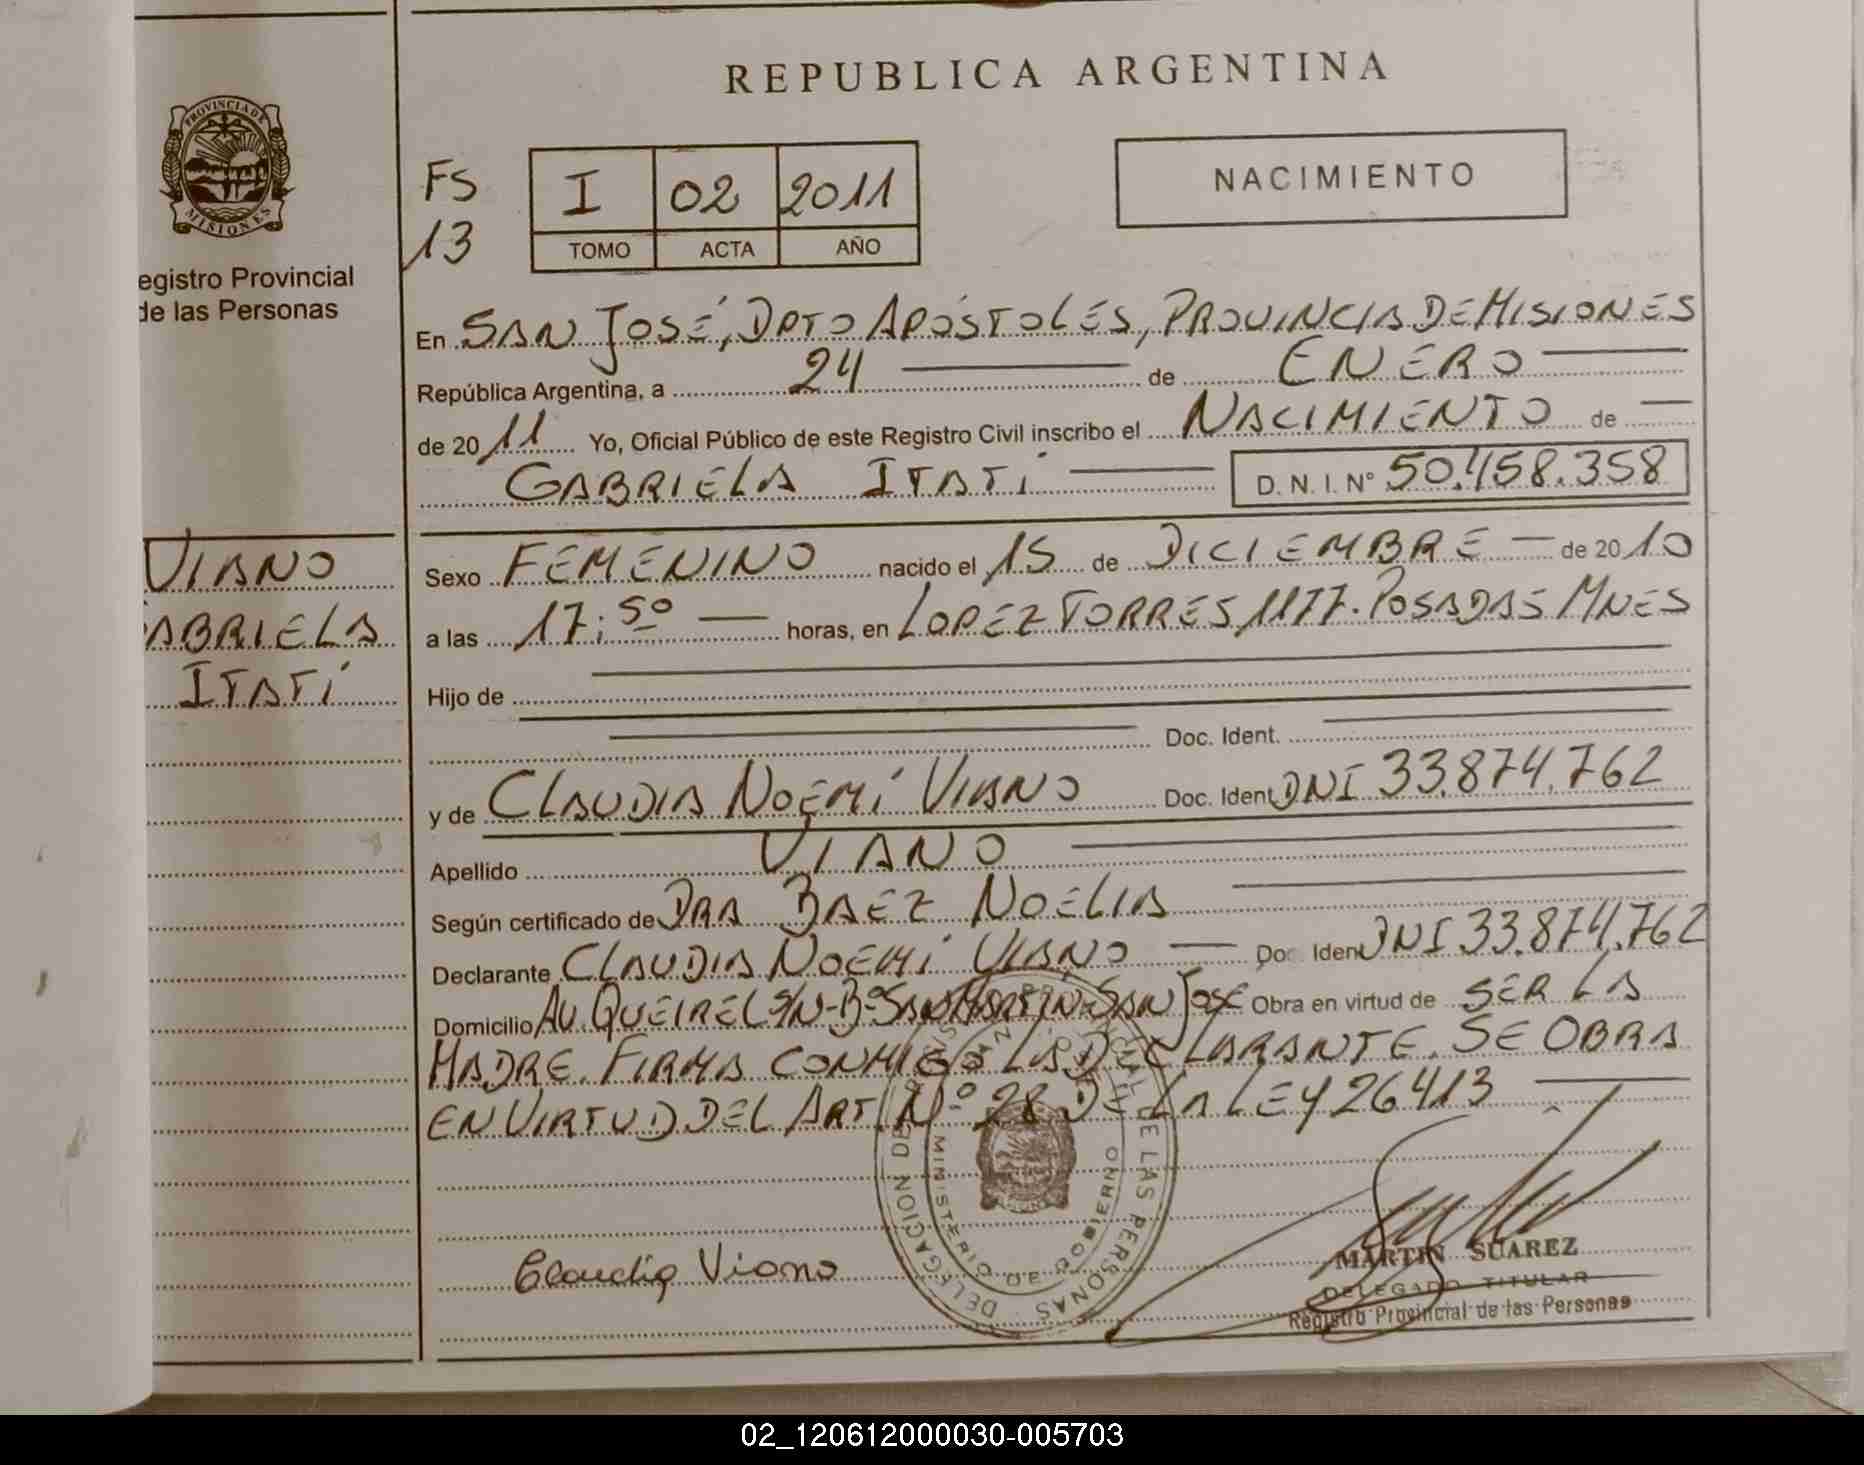 REPUBLICA ARGENTINA
PROVINCIA DE
MISIONES
egistro Provincial
de las Personas
VIANO
ABRIELA
ITATÍ
FS
13
I 02 2011
TOMO ACTA AÑO
NACIMIENTO
En SAN JOSÉ, DPTO APÓSTOLES, PROVINCIA DE MISIONES
República Argentina, a 24 de ENERO
de 2011 Yo, Oficial Público de este Registro Civil inscribo el NACIMIENTO de
GABRIELA ITATÍ D. N. I. N° 50.458.358
Sexo FEMENINO nacido el 15 de DICIEMBRE de 2010
a las 17:50 horas, en LOPEZ TORRES 1177. POSADAS MNES
Hijo de
Doc. Ident.
y de CLAUDIA NOEMÍ VIANO Doc. Ident. DNI 33.874.762
Apellido VIANO
Según certificado de DRA BAEZ NOELIA
Declarante CLAUDIA NOEMÍ VIANO Doc Ident DNI 33.874.762
Domicilio AV. QUEIREL S/N-B° SAN MARTIN-SAN JOSE Obra en virtud de SER LA
MADRE. FIRMA CONMIGO LA DECLARANTE. SE OBRA
EN VIRTUD DEL ART. N° 28 DE LA LEY 26413
DELEGACION DE
DE LAS PERSONAS
MINISTERIO DE GOBIERNO
Claudia Viano
MARTIN SUAREZ
DELEGADO TITULAR
Registro Provincial de las Personas
02_120612000030-005703